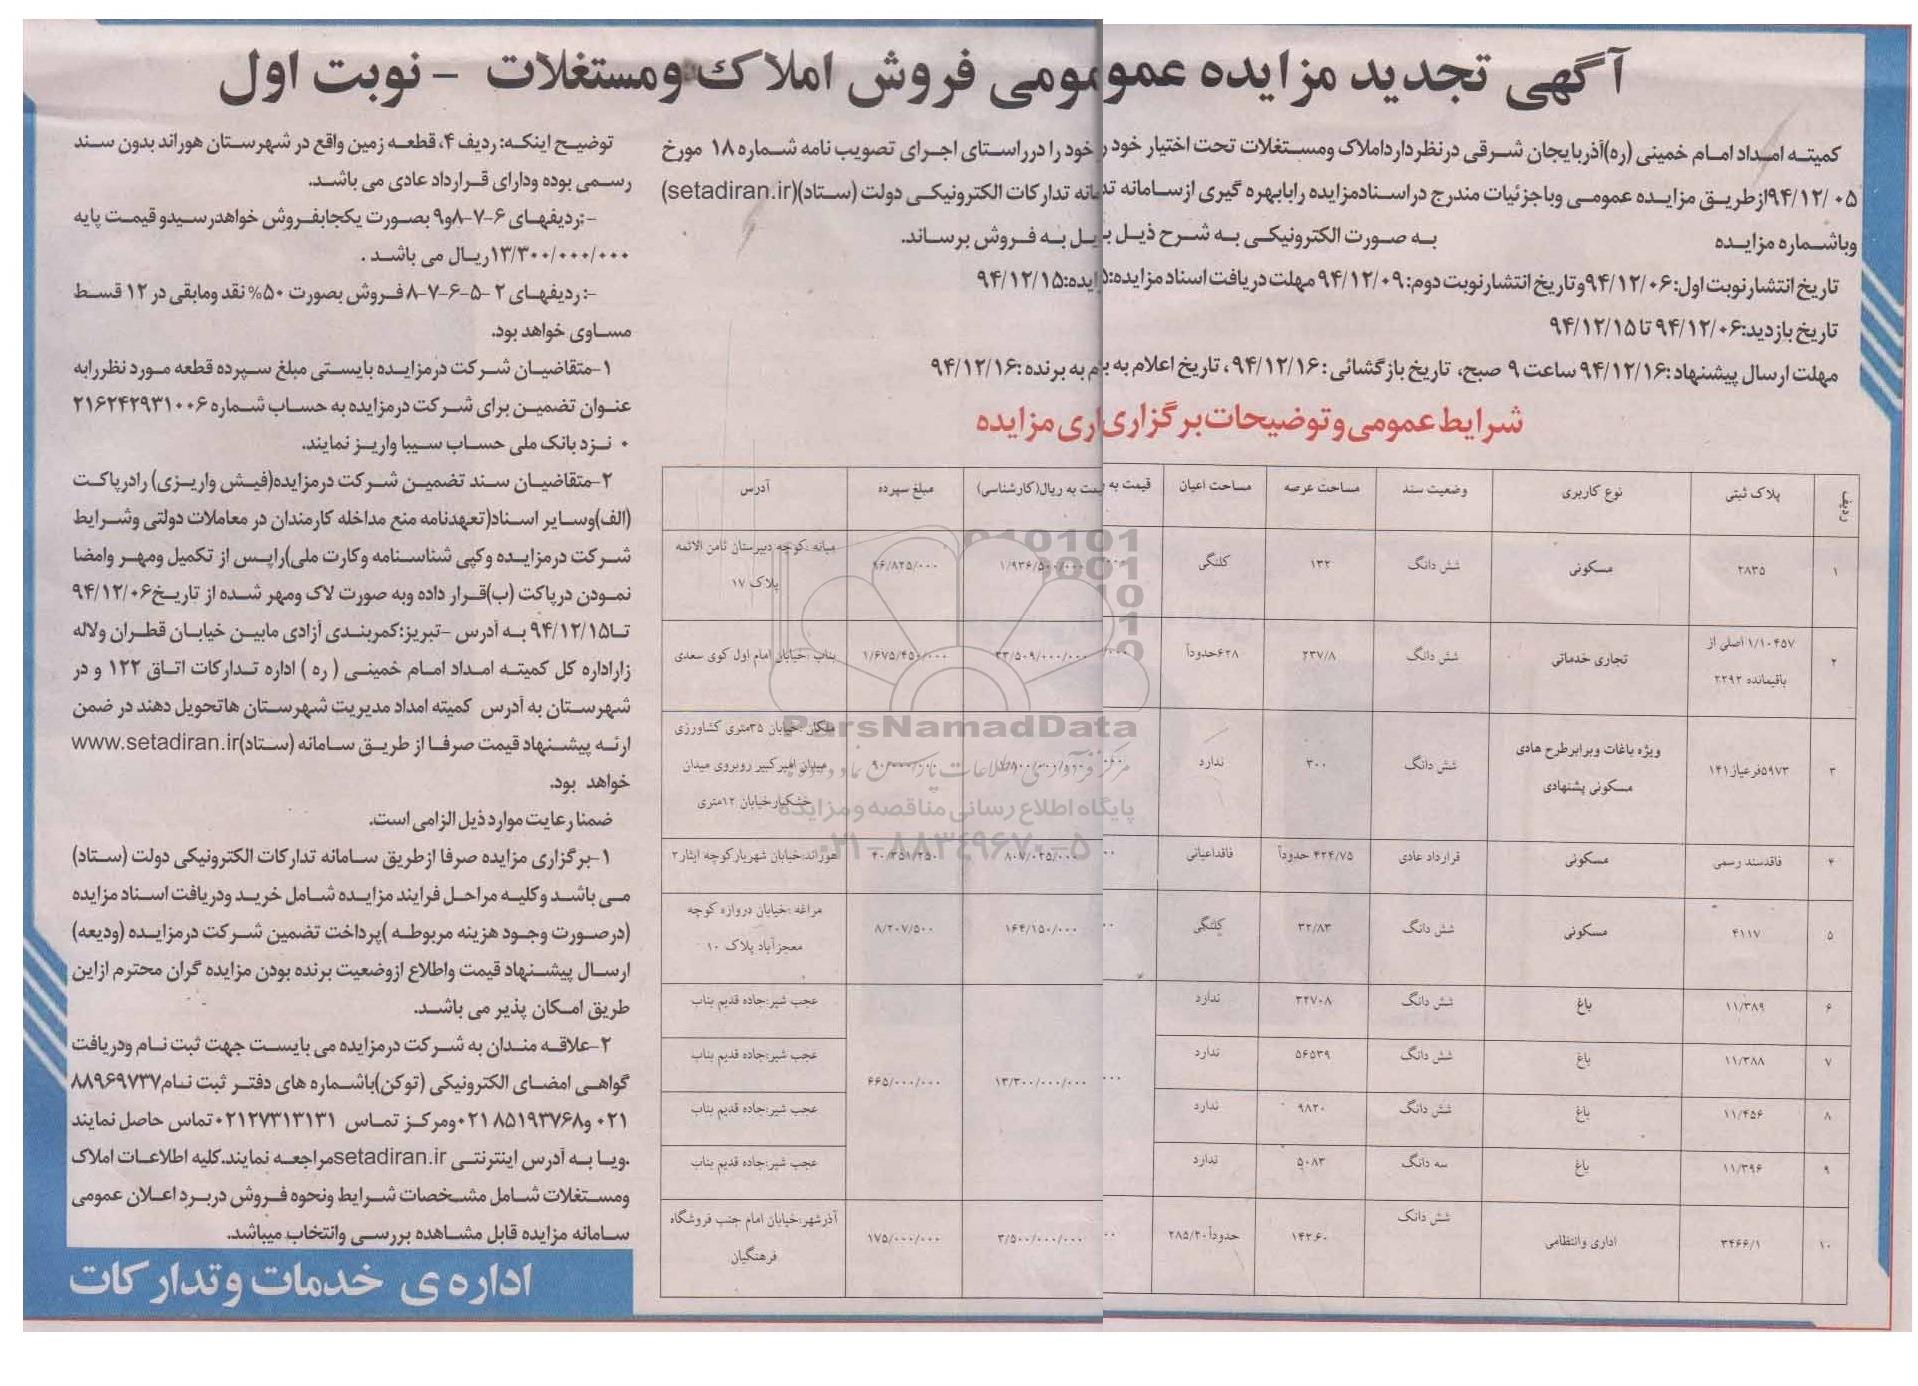 آگهی تجدید مزایده عمومی فروش املاک ومستغلات - نوبت اول
کمیته امداد امام خمینی (ره)آذربایجان شرقی درنظرداردامالاک ومستغلات تحت اختیار خود را درراستای اجرای تصویب نامه شماره ۱۸ مورخ
۹۴/۱۲/۰۵ازطریق مزایده عمومی وباجزئیات مندرج دراسنادمزایده رابابهره گیری ازسامانه تدارکات الکترونیکی دولت (ستاد)(setadiran.ir)
وباشماره مزایده به صورت الکترونیکی به شرح ذیل به فروش برساند.
تاریخ انتشارنوبت اول:۹۴/۱۲/۰۶وتاریخ انتشارنوبت دوم: ۹۴/۱۲/۰۹ مهلت دریافت اسناد مزایده:۹۴/۱۲/۱۵
تاریخ بازدید:۹۴/۱۲/۰۶ تا ۹۴/۱۲/۱۵
مهلت ارسال پیشنهاد:۹۴/۱۲/۱۶ ساعت ۹ صبح، تاریخ بازگشائی: ۹۴/۱۲/۱۶، تاریخ اعلام به برنده :۹۴/۱۲/۱۶
شرایط عمومی وتوضیحات برگزاری مزایده
ردیف پلاک ثبتی نوع کاربری وضعیت سند مساحت عرصه مساحت اعیان قیمت به ریال(کارشناسی) مبلغ سپرده آدرس
۱ ۲۸۳۵ مسکونی شش دانگ ۱۳۲ کلنگی ۱/۹۳۶/۵۰۰/۰۰۰ ۹۶/۸۲۵/۰۰۰ میانه :کوچه دبیرستان ثامن الائمه
پلاک ۱۷
۲ ۱/۱۰۴۵۷ اصلی از
باقیمانده ۲۲۹۲ تجاری خدماتی شش دانگ ۲۳۷/۸ ۶۲۸حدوداً ۳۳/۵۰۹/۰۰۰/۰۰۰ ۱/۶۷۵/۴۵۰/۰۰۰ بناب :خیابان امام اول کوی سعدی
۳ ۵۹۷۳فرعیاز۱۴۱ ویژه باغات وبرابرطرح هادی
مسکونی پشنهادی شش دانگ ۳۰۰ ندارد ملکان :خیابان ۳۵متری کشاورزی
میدان امیرکبیر روبروی میدان
خشکبارخیابان ۱۲متری
۴ فاقدسند رسمی مسکونی قرارداد عادی ۴۲۴/۷۵ حدوداً فاقداعیانی ۸۰۷/۰۲۵/۰۰۰ ۴۰/۳۵۱/۲۵۰ هوراند:خیابان شهریارکوچه ایثار۲
۵ ۴۱۱۷ مسکونی شش دانگ ۳۲/۸۳ کلنگی ۱۶۴/۱۵۰/۰۰۰ ۸/۲۰۷/۵۰۰ مراغه :خیابان دروازه کوچه
معجزآباد پلاک ۱۰
۶ ۱۱/۳۸۹ باغ شش دانگ ۳۲۷۰۸ ندارد عجب شیر:جاده قدیم بناب
۷ ۱۱/۳۸۸ باغ شش دانگ ۵۶۵۳۹ ندارد ۱۳/۳۰۰/۰۰۰/۰۰۰ ۶۶۵/۰۰۰/۰۰۰ عجب شیر:جاده قدیم بناب
۸ ۱۱/۴۵۶ باغ شش دانگ ۹۸۲۰ ندارد عجب شیر:جاده قدیم بناب
۹ ۱۱/۳۹۶ باغ سه دانگ ۵۰۸۳ ندارد عجب شیر:جاده قدیم بناب
۱۰ ۳۴۶۶/۱ اداری وانتظامی شش دانگ ۱۴۲.۶۰ حدوداً ۲۸۵/۲۰ ۳/۵۰۰/۰۰۰/۰۰۰ ۱۷۵/۰۰۰/۰۰۰ آذرشهر:خیابان امام جنب فروشگاه
فرهنگیان
توضیح اینکه: ردیف ۴، قطعه زمین واقع در شهرستان هوراند بدون سند
رسمی بوده ودارای قرارداد عادی می باشد.
-:ردیفهای ۶-۷-۸و۹ بصورت یکجابفروش خواهدرسیدو قیمت پایه
۱۳/۳۰۰/۰۰۰/۰۰۰ریال می باشد .
-: ردیفهای ۲ -۵-۶-۷-۸ فروش بصورت ۵۰% نقد ومابقی در ۱۲ قسط
مساوی خواهد بود.
۱-متقاضیان شرکت درمزایده بایستی مبلغ سپرده قطعه مورد نظررابه
عنوان تضمین برای شرکت درمزایده به حساب شماره ۲۱۶۲۴۲۹۳۱۰۰۶
۰ نزد بانک ملی حساب سیبا واریز نمایند.
۲-متقاضیان سند تضمین شرکت درمزایده(فیش واریزی) رادرپاکت
(الف)وسایر اسناد(تعهدنامه منع مداخله کارمندان در معاملات دولتی وشرایط
شرکت درمزایده وکپی شناسنامه وکارت ملی)راپس از تکمیل ومهر وامضا
نمودن درپاکت (ب)قرار داده وبه صورت لاک ومهر شده از تاریخ۹۴/۱۲/۰۶
تا۹۴/۱۲/۱۵ به آدرس -تبریز:کمربندی آزادی مابین خیابان قطران ولاله
زاراداره کل کمیته امداد امام خمینی ( ره ) اداره تدارکات اتاق ۱۲۲ و در
شهرستان به آدرس کمیته امداد مدیریت شهرستان هاتحویل دهند در ضمن
ارئه پیشنهاد قیمت صرفا از طریق سامانه (ستاد)www.setadiran.ir
خواهد بود.
ضمنا رعایت موارد ذیل الزامی است.
۱-برگزاری مزایده صرفا ازطریق سامانه تدارکات الکترونیکی دولت (ستاد)
می باشد وکلیه مراحل فرایند مزایده شامل خرید ودریافت اسناد مزایده
(درصورت وجود هزینه مربوطه )پرداخت تضمین شرکت درمزایده (ودیعه)
ارسال پیشنهاد قیمت واطلاع ازوضعیت برنده بودن مزایده گران محترم ازاین
طریق امکان پذیر می باشد.
۲-علاقه مندان به شرکت درمزایده می بایست جهت ثبت نام ودریافت
گواهی امضای الکترونیکی (توکن)باشماره های دفتر ثبت نام۸۸۹۶۹۷۳۷
۰۲۱ و۸۵۱۹۳۷۶۸ ۰۲۱ومرکز تماس ۰۲۱۲۷۳۱۳۱۳۱تماس حاصل نمایند
.ویا به آدرس اینترنتی setadiran.irمراجعه نمایند.کلیه اطلاعات املاک
ومستغلات شامل مشخصات شرایط ونحوه فروش دربرد اعلان عمومی
سامانه مزایده قابل مشاهده بررسی وانتخاب میباشد.
اداره ی خدمات وتدارکات
ParsNamadData
پایگاه اطلاع رسانی مناقصه و مزایده
۰۲۱-۸۸۳۴۹۶۷۰-۵